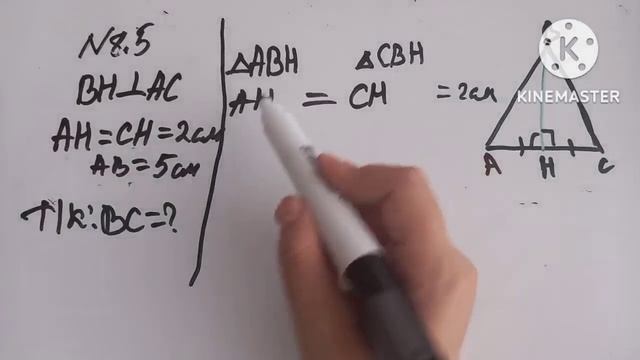 N 8.5
BH⊥AC
AH=CH=2см
AB=5см
T/K: BC=?
△ABH △CBH
AH = CH =2см
A H C
KINEMASTER